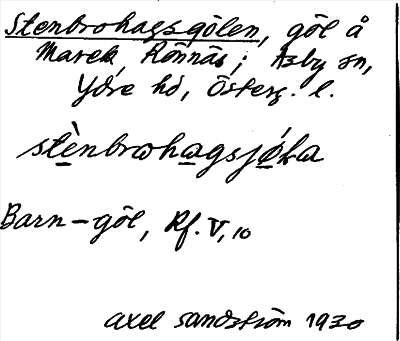 Stenbrohagsgölen, göl å
Marek, Rönnäs; Asby sn,
Ydre hd, Österg. l.
stènbrωhagsjǿla
Barn-göl, Rf. V, 10
Axel Sandström 1930